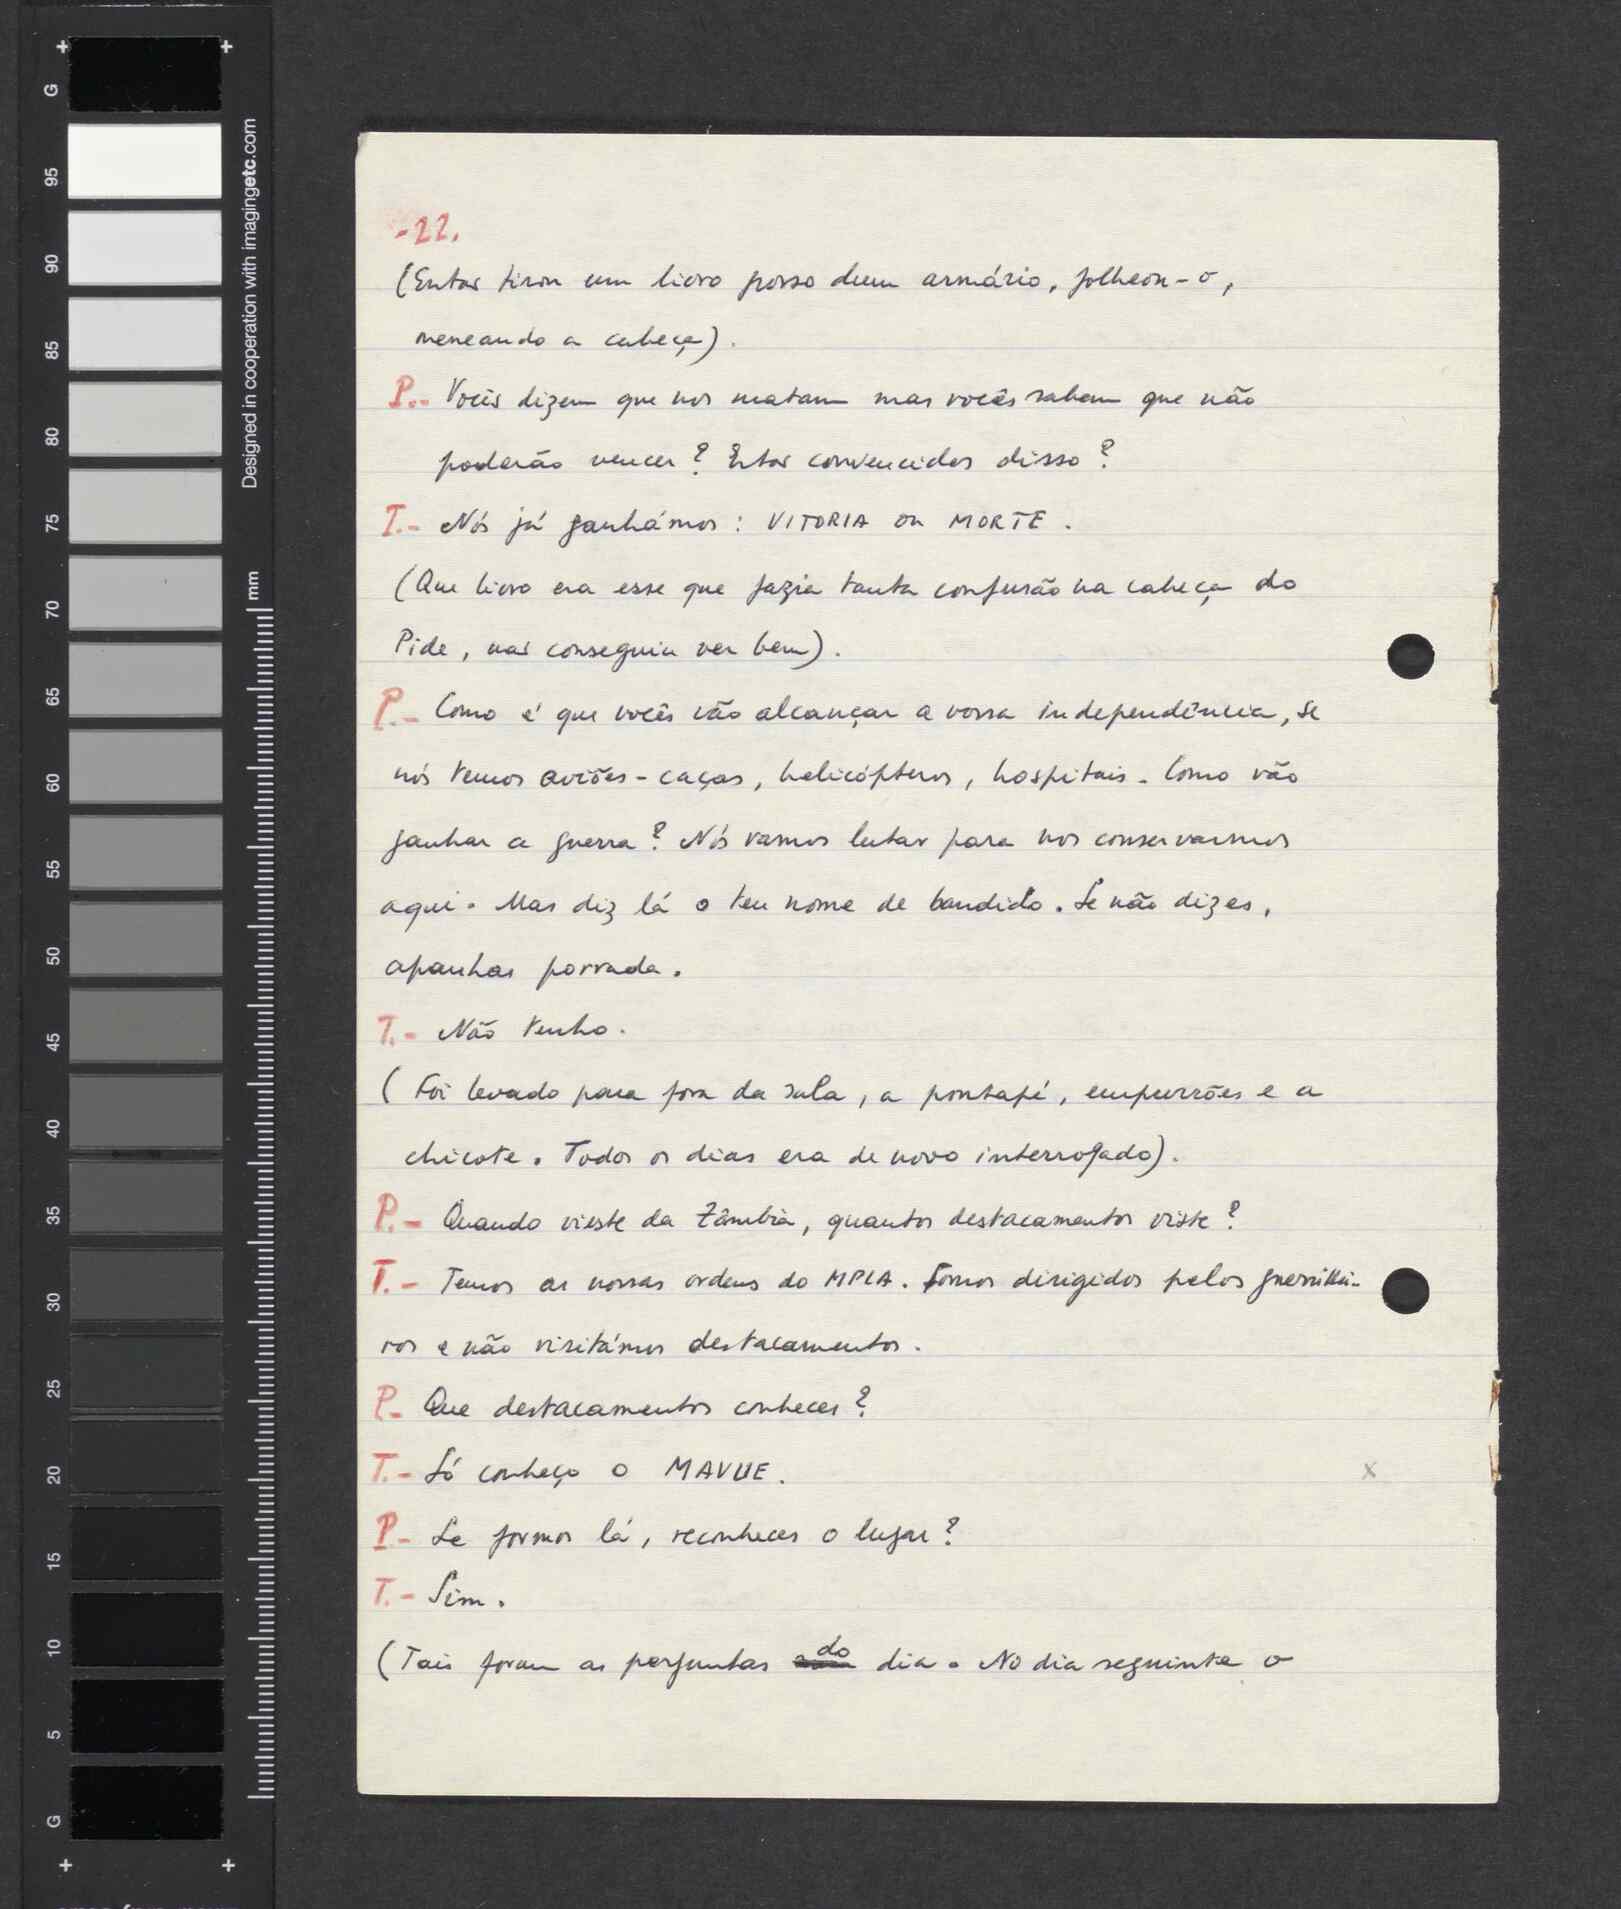 G
95
90
85
80
75
70
65
60
55
50
45
40
35
30
25
20
15
10
5
G
Designed in cooperation with imagingetc.com
mm
-22.
(Então tirou um livro grosso dum armário, folheou-o,
meneando a cabeça).
P.- Vocês dizem que nos matam mas vocês sabem que não
poderão vencer? Estás convencidos disso?
T.- Nós já ganhámos: VITORIA ou MORTE.
(Que livro era esse que fazia tanta confusão na cabeça do
Pide, não conseguiu ver bem).
P.- Como é que vocês vão alcançar a vossa independência, se
nós temos aviões-caças, helicópteros, hospitais. Como vão
ganhar a guerra? Nós vamos lutar para nos conservarmos
aqui. Mas diz lá o teu nome de bandido. Se não dizes,
apanhas porrada.
T.- Não tenho.
(Foi levado para fora da sala, a pontapé, empurrões e a
chicote. Todos os dias era de novo interrogado).
P.- Quando vieste da Zâmbia, quantos destacamentos viste?
T.- Temos as nossas ordens do MPLA. Somos dirigidos pelos guerrilhei-
ros e não visitámos destacamentos.
P- Que destacamentos conheces?
T.- Só conheço o MAVUE. x
P- Se formos lá, reconheces o lugar?
T.- Sim.
(Tais foram as perguntas do dia. No dia seguinte o